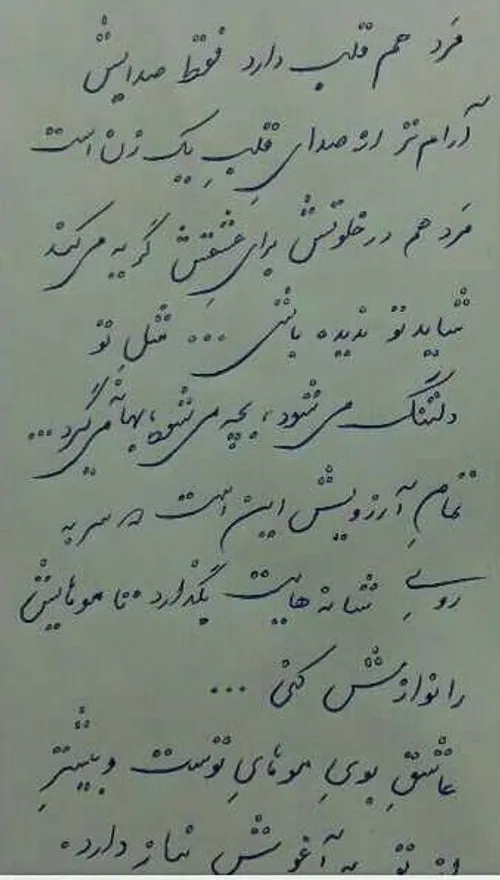 مَرد هم قلب دارد فقط صدایش
آرام‌تر از صدای قلبِ یک زن است
مَرد هم در خلوتش برای عشقش گریه می‌کند
شاید تو ندیده باشی ... مثل تو
دلتنگ می‌شود، بچه می‌شود، بهانه می‌گیرد ...
تمامِ آرزویش این است که سر به
رویِ شانه‌هایت بگذارد تا موهایش
را نوازش کنی ...
عاشقِ بویِ موهایِ توست و بیشتر
از تو به آغوش نیاز دارد.